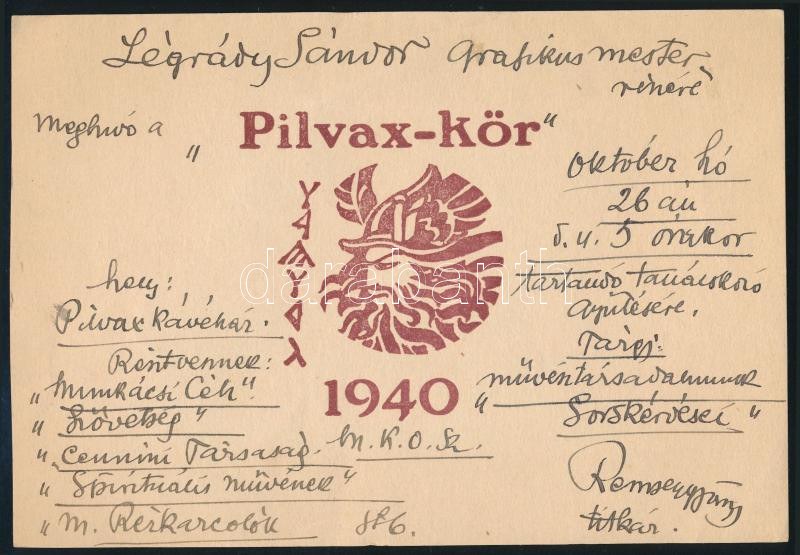 Légrády Sándor grafikus mester
részére
Meghívó a
"Pilvax-kör"
október hó
26 án
d. u. 5 órakor
tartandó tanácskozó
gyűlésére.
Tárgy:
"művésztársadalmunk
Sorskérdései"
hely:
Pilvax kávéház.
Résztvennek:
"Munkácsi Céh"
"Szövetség"
"Cennini Társaság. M.K.O.Sz.
"Spirituális művészek"
"M. Rézkarcolók stb.
1940
titkár.
darabanth